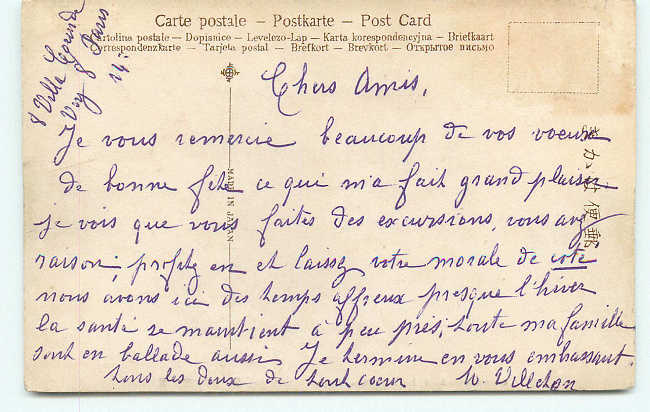 Carte postale – Postkarte – Post Card
Cartolina postale – Dopisnice – Levelezo-Lap – Karta korespondencyjna – Briefkaart
Correspondenzkarte – Tarjeta postal – Brefkort – Brevkort – Открытое письмо
8 Villa
Paris
14e
Chers Amis,
Je vous remercie beaucoup de vos voeux
de bonne fête ce qui m'a fait grand plaisir.
je vois que vous faites des excursions, vous avez
raison; profitez en et laissez votre morale de coté
nous avons ici des temps affreux presque l'hiver
la santé se maintient à peu près; toute ma famille
sont en ballade aussi Je termine en vous embrassant.
tous les deux de tout coeur
MADE IN JAPAN
郵便はかき